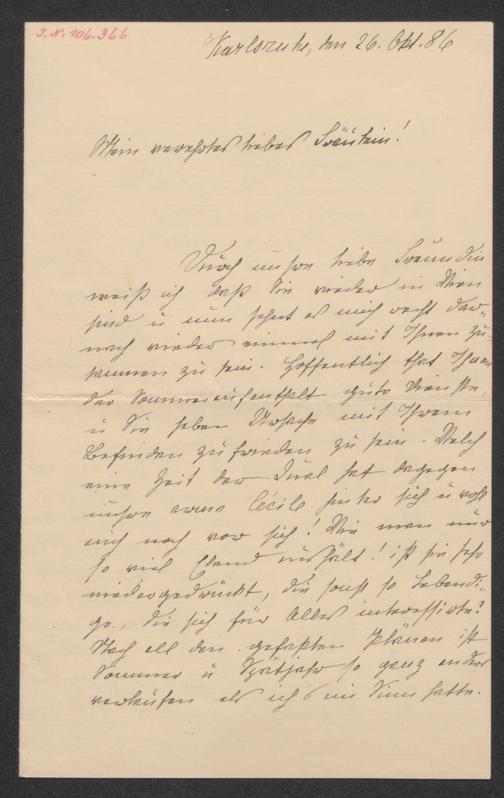 I.N. 106.366
Karlsruhe, den 26. Okt. 86
Mein verehrtes liebes Fräulein!
Durch unsre liebe Freundin
weiß ich daß Sie wieder in Wien
sind u nun sehnt es mich recht dar„
nach wieder einmal mit Ihnen zu„
sammen zu sein. Hoffentlich that Ihnen
der Sommeraufenthalt gute Dienste
u Sie haben Ursache mit Ihrem
Befinden zufrieden zu sein. Welch
eine Zeit der Qual hat dagegen
unsre arme Cécile hinter sich u wohl
auch noch vor sich! Wie man nur
so viel Elend aushält! ist sie sehr
niedergedrückt, die sonst so lebendi„
ge, die sich für Alles interessirte?
Nach all den gefaßten Plänen ist
Sommer u Spätjahr so ganz anders
verlaufen als ich's im Sinn hatte.